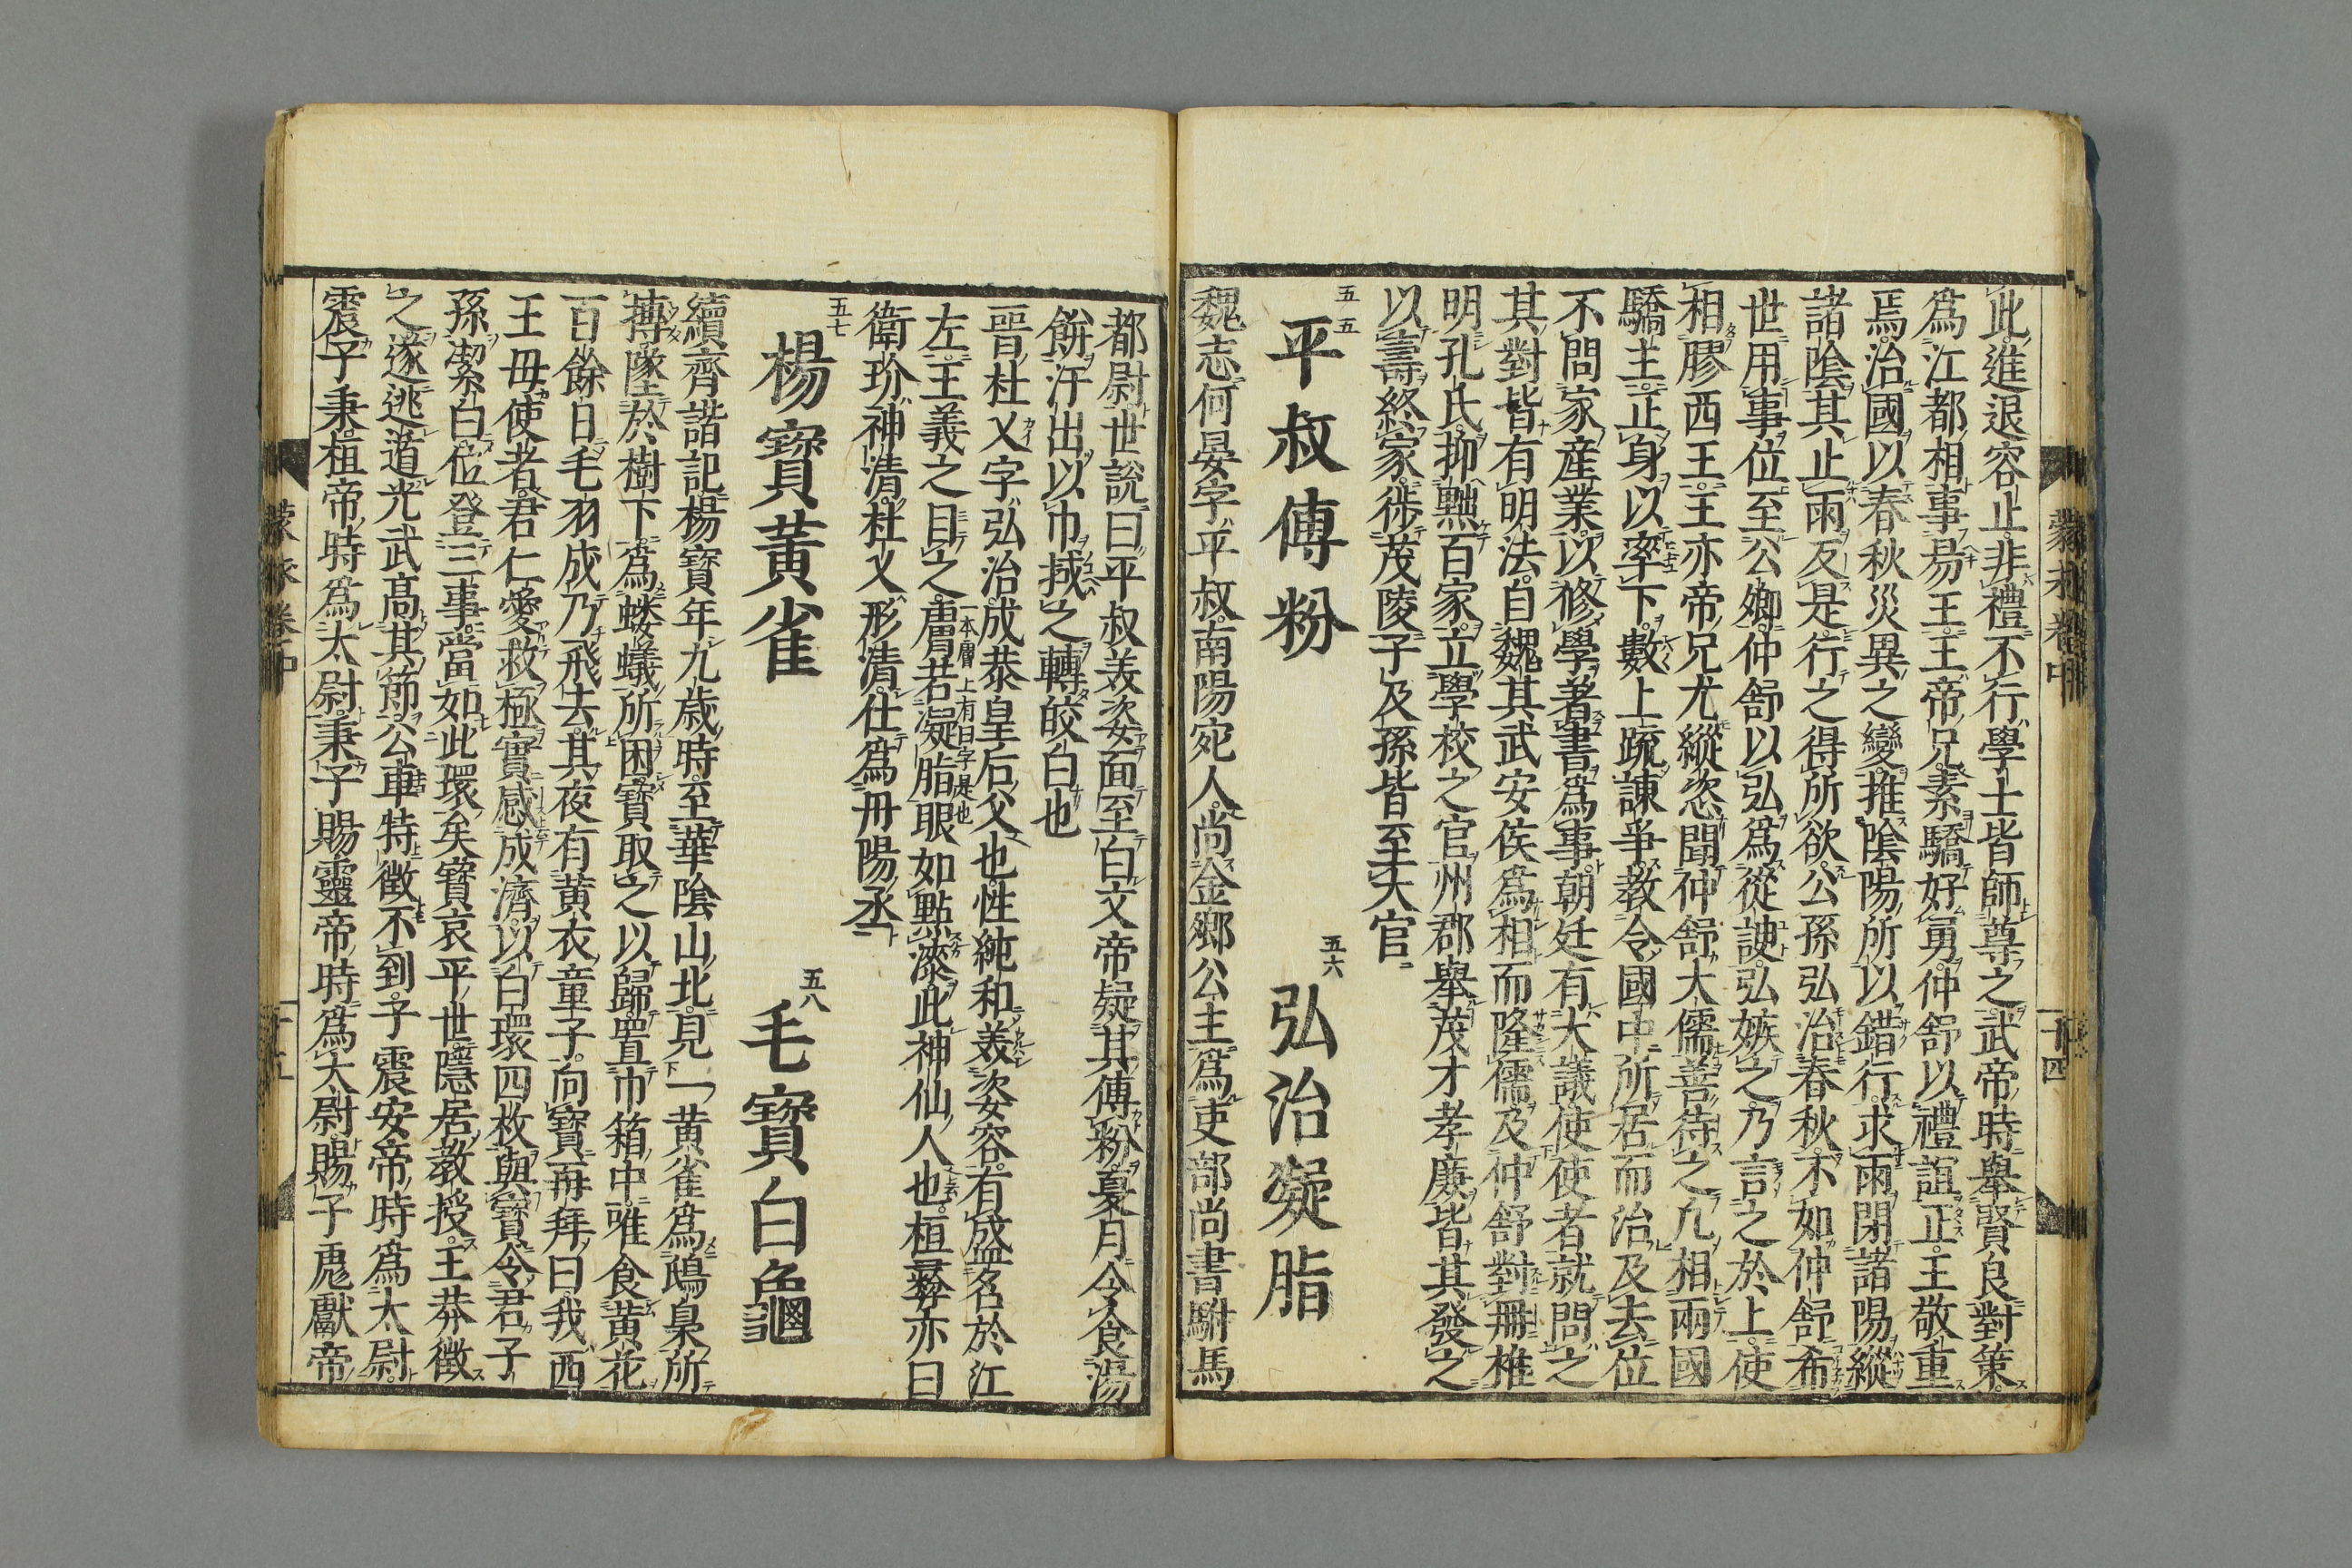 此進退容止非禮不行學士皆師尊之武帝時舉賢良對策
爲江都相事易王王帝兄素驕好勇仲舒以禮誼正王敬重
焉治國以春秋災異之變推陰陽所以錯行求雨閉諸陽縱
諸陰其止雨反是行之得所欲公孫弘治春秋不如仲舒希
世用事位至公卿仲舒以弘爲從諛弘嫉之乃言之於上使
相膠西王王亦帝兄尤縱恣聞仲舒大儒善待之凡相兩國
驕主正身以率下數上疏諌爭教令國中所居而治及去位
不問家産業以修學著書爲事朝廷有大議使使者就問之
其對皆有明法自魏其武安侯爲相而隆儒及仲舒對冊推
明孔氏抑黜百家立學校之官州郡舉茂才孝廉皆其發之
以壽終家徙茂陵子及孫皆至大官
五五 平叔傅粉 五六 弘治凝脂
魏志何晏字平叔南陽宛人尚金鄉公主爲吏部尚書駙馬
蒙求卷中 十四
都尉世說曰平叔美姿面至白文帝疑其傅粉夏月令食湯
餅汗出以巾拭之轉皎白也
晉杜乂字弘治成恭皇后父也性純和美姿容有盛名於江
左王義之目之膚若凝脂眼如點漆此神仙人也桓彝亦曰
一本膚上有曰字是也
衛玠神清杜乂形清仕爲丹陽丞
五七 楊寶黃雀 五八 毛寶白龜
續齊諧記楊寶年九歳時至華陰山北見一黄雀爲鴟梟所
搏墜於樹下爲螻蟻所困寶取之以歸置巾箱中唯食黄花
百餘日毛羽成乃飛去其夜有黄衣童子向寶再拜曰我西
王母使者君仁愛救極實感成濟以白環四枚與寶令君子
孫潔白位登三事當如此環矣寶哀平世隱居教授王莽徵
之遂逃遁光武高其節公車特徵不到子震安帝時爲太尉
震子秉桓帝時爲太尉秉子賜靈帝時爲太尉賜子彪獻帝
蒙求卷中 十五